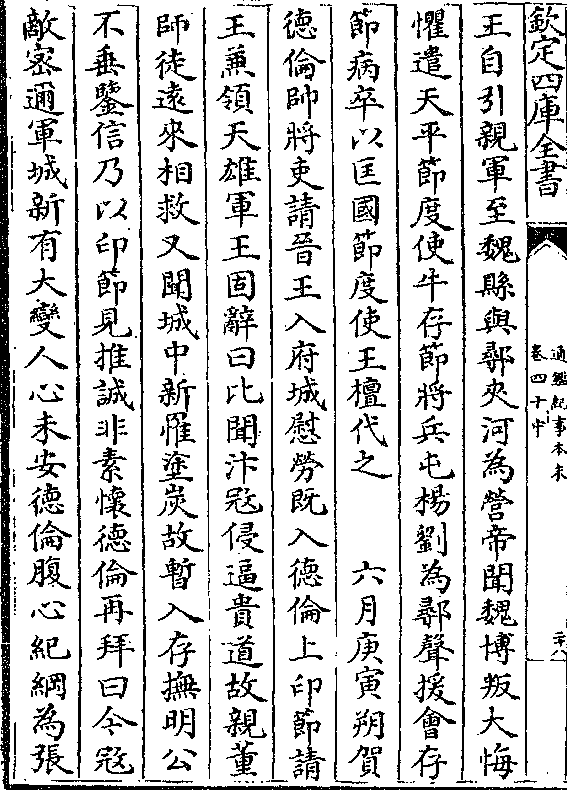 欽定四庫全書
通鑑紀事本末
卷四十中
王自引親軍至魏縣與鄩夾河為營帝聞魏博叛大悔
懼遣天平節度使牛存節將兵屯楊劉為鄩聲援會存
節病卒以匡國節度使王檀代之　六月庚寅朔賀
德倫帥將吏請晉王入府城慰勞既入德倫上印節請
王兼領天雄軍王固辭曰比聞汴宼侵逼貴道故親董
師徒逺來相救又聞城中新罹塗炭故暫入存撫明公
不垂鑒信乃以印節見推誠非素懷德倫再拜曰今宼
敵密邇軍城新有大變人心未安德倫腹心紀綱為張